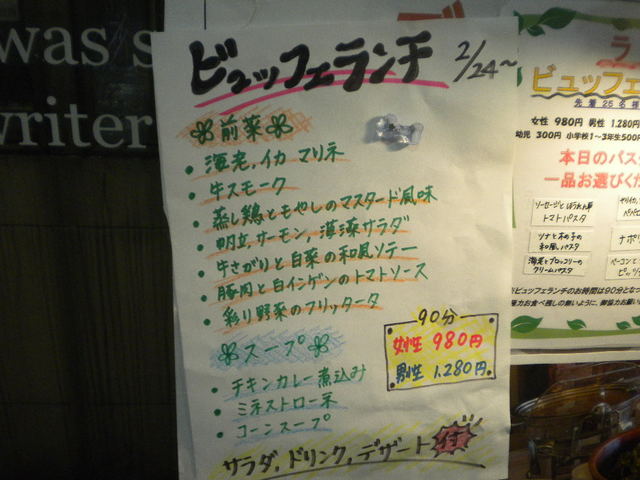 was s
writer
ビュッフェランチ 2/24~
前菜
• 海老,イカ マリネ
• 牛スモーク
• 蒸し鶏ともやしのマスタード風味
• 帆立,サーモン,海藻サラダ
• 牛さがりと白菜の和風ソテー
• 豚肉と白インゲンのトマトソース
• 彩り野菜のフリッタータ
スープ
• チキンカレー煮込み
• ミネストローネ
• コーンスープ
90分
女性 980円
男性 1,280円
サラダ,ドリンク,デザート付
ラ
ビュッフェ
先着25名様
女性 980円 男性 1,280円
幼児 300円 小学校1~3年生500円
本日のパスタ
一品お選びくだ
ソーセージとほうれん草
トマトパスタ
ツナと木の子の
和風パスタ
海老とブロッコリーの
クリームパスタ
ナポリ
ベーコンと
ピッツ
ビュッフェランチのお時間は90分とな
お食べ残しの無いように、御協力お願い